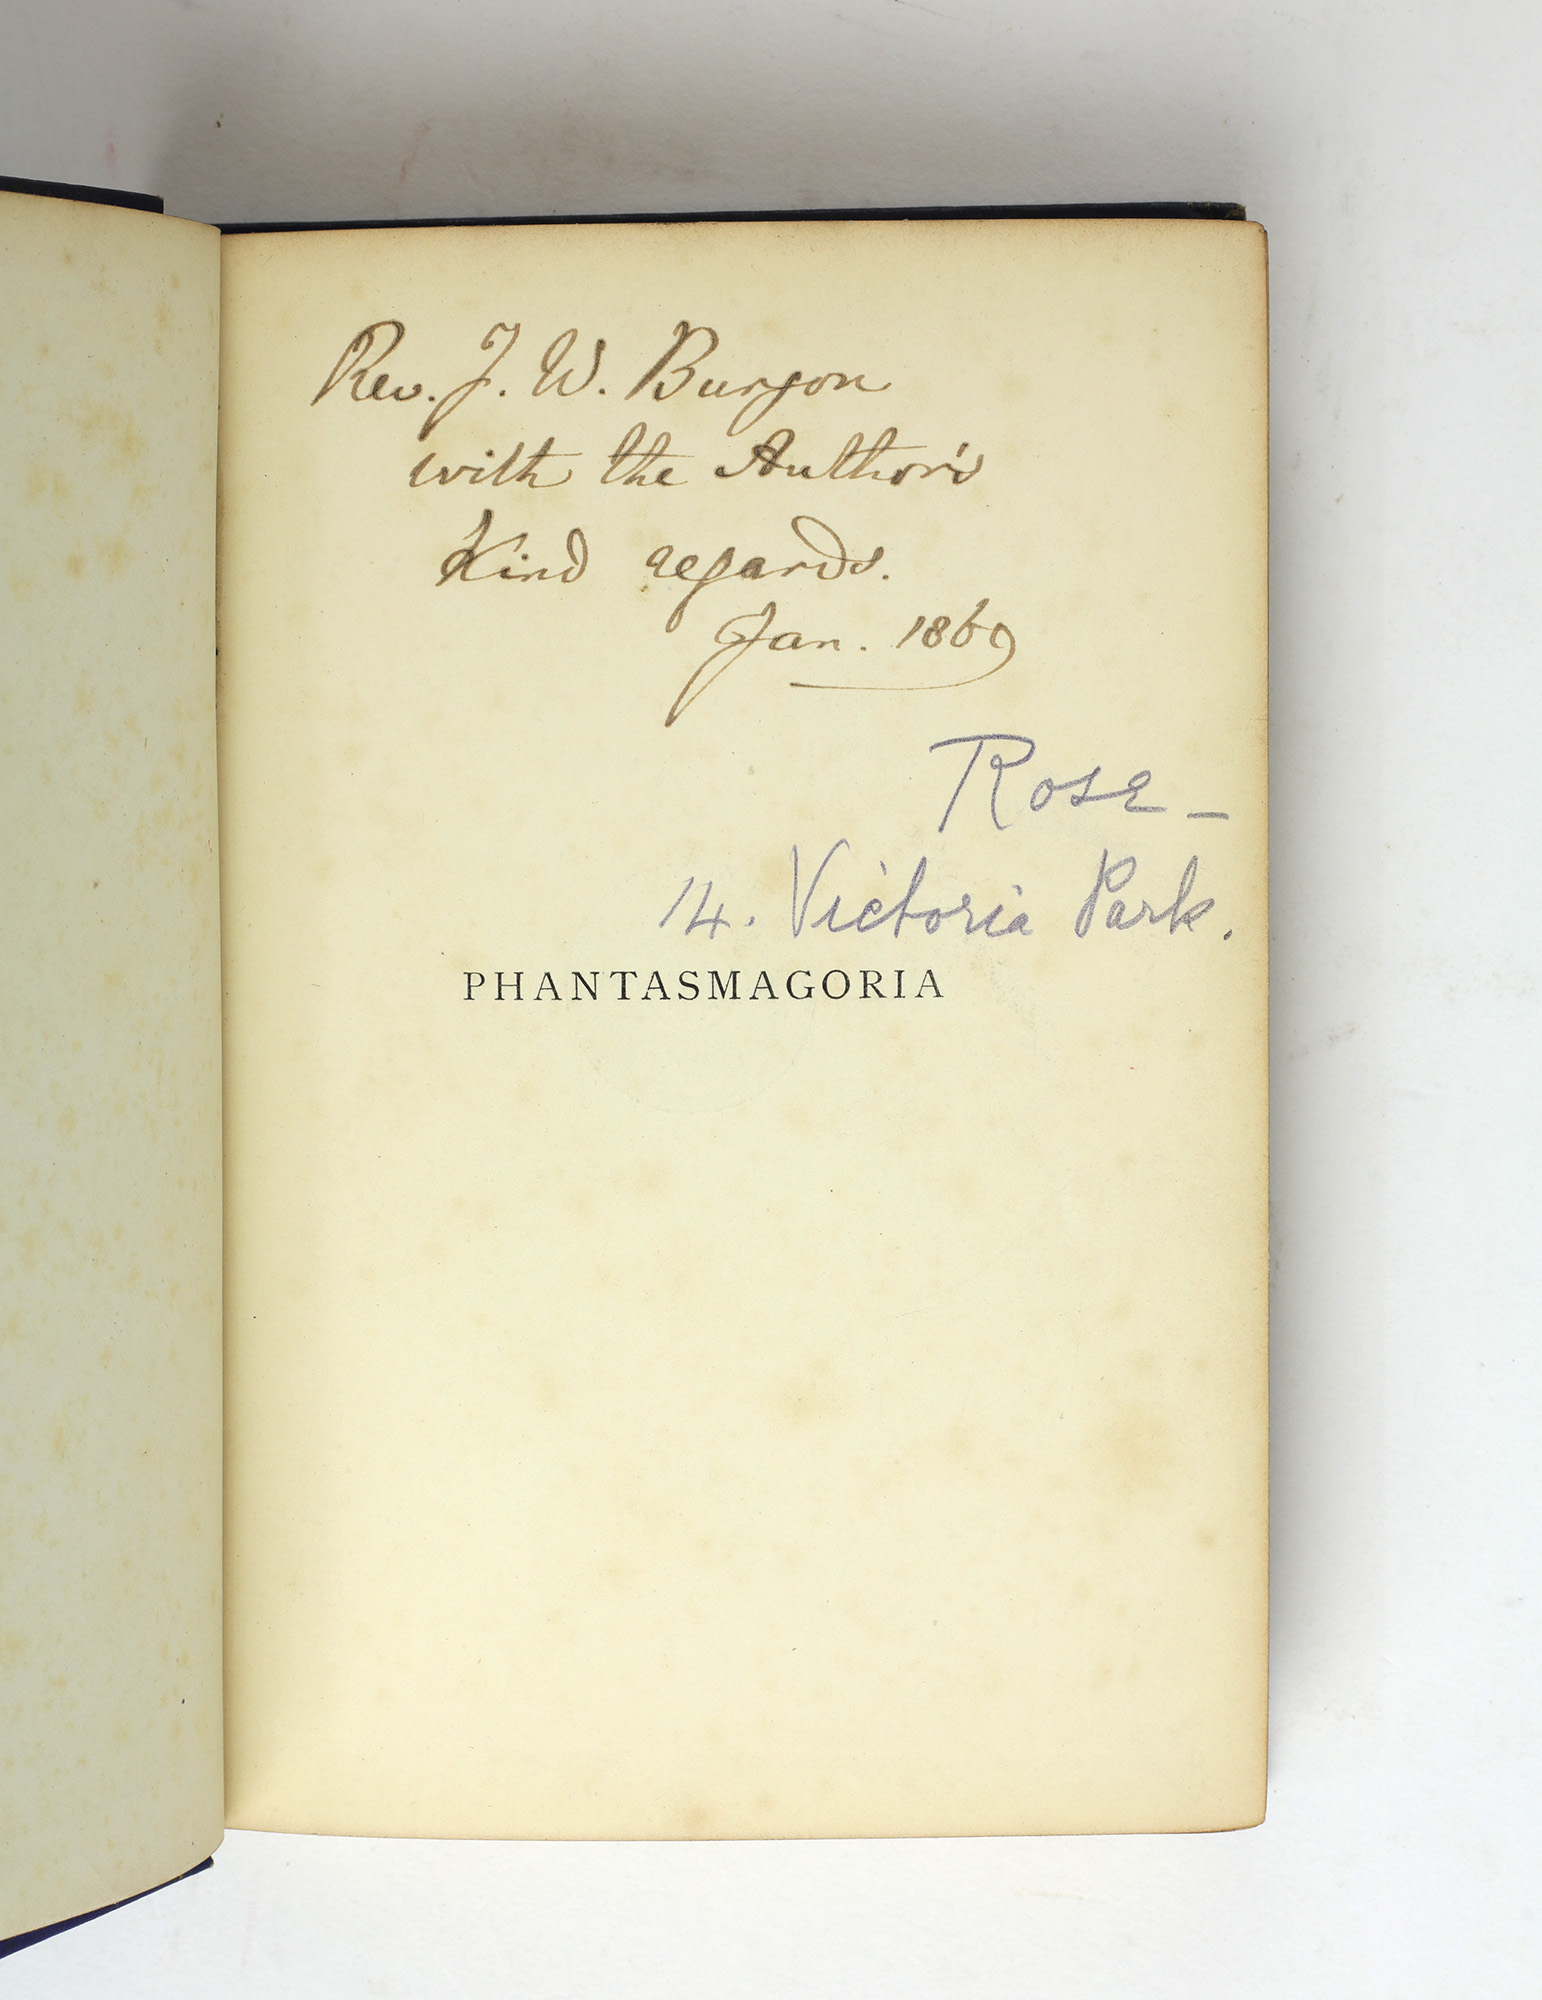 Rev. J. W. Burgon
with the Author's
kind regards.
Jan. 1869
Rose -
14. Victoria Park.
PHANTASMAGORIA